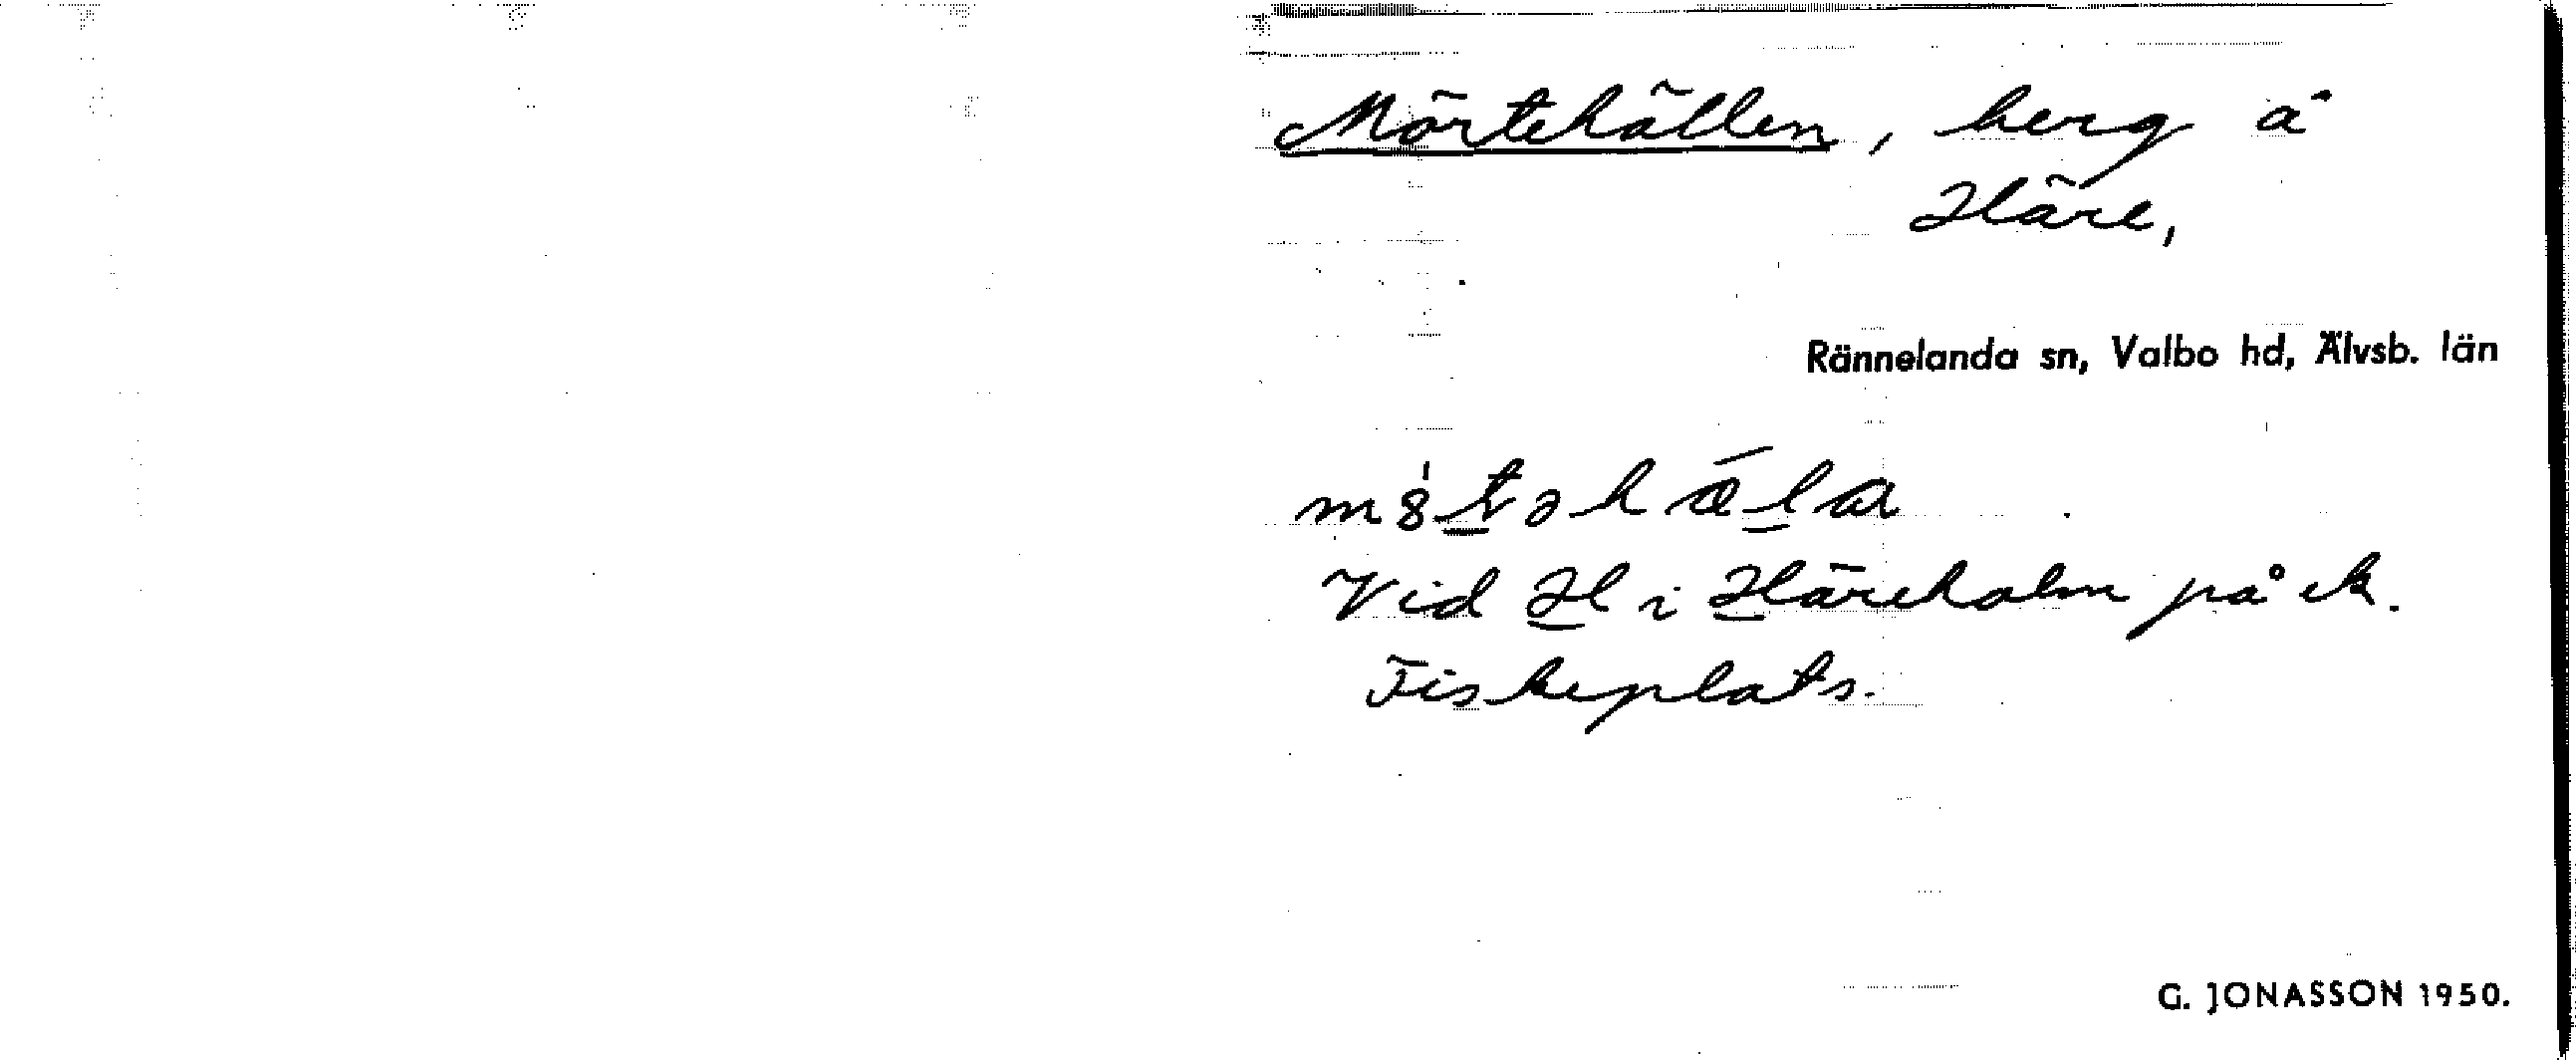 Mörtehällen, berg å
Häre,
Rännelanda sn, Valbo hd, Älvsb. län
Vid H i Häreholm på ek.
Fiskeplats.
G. JONASSON 1950.